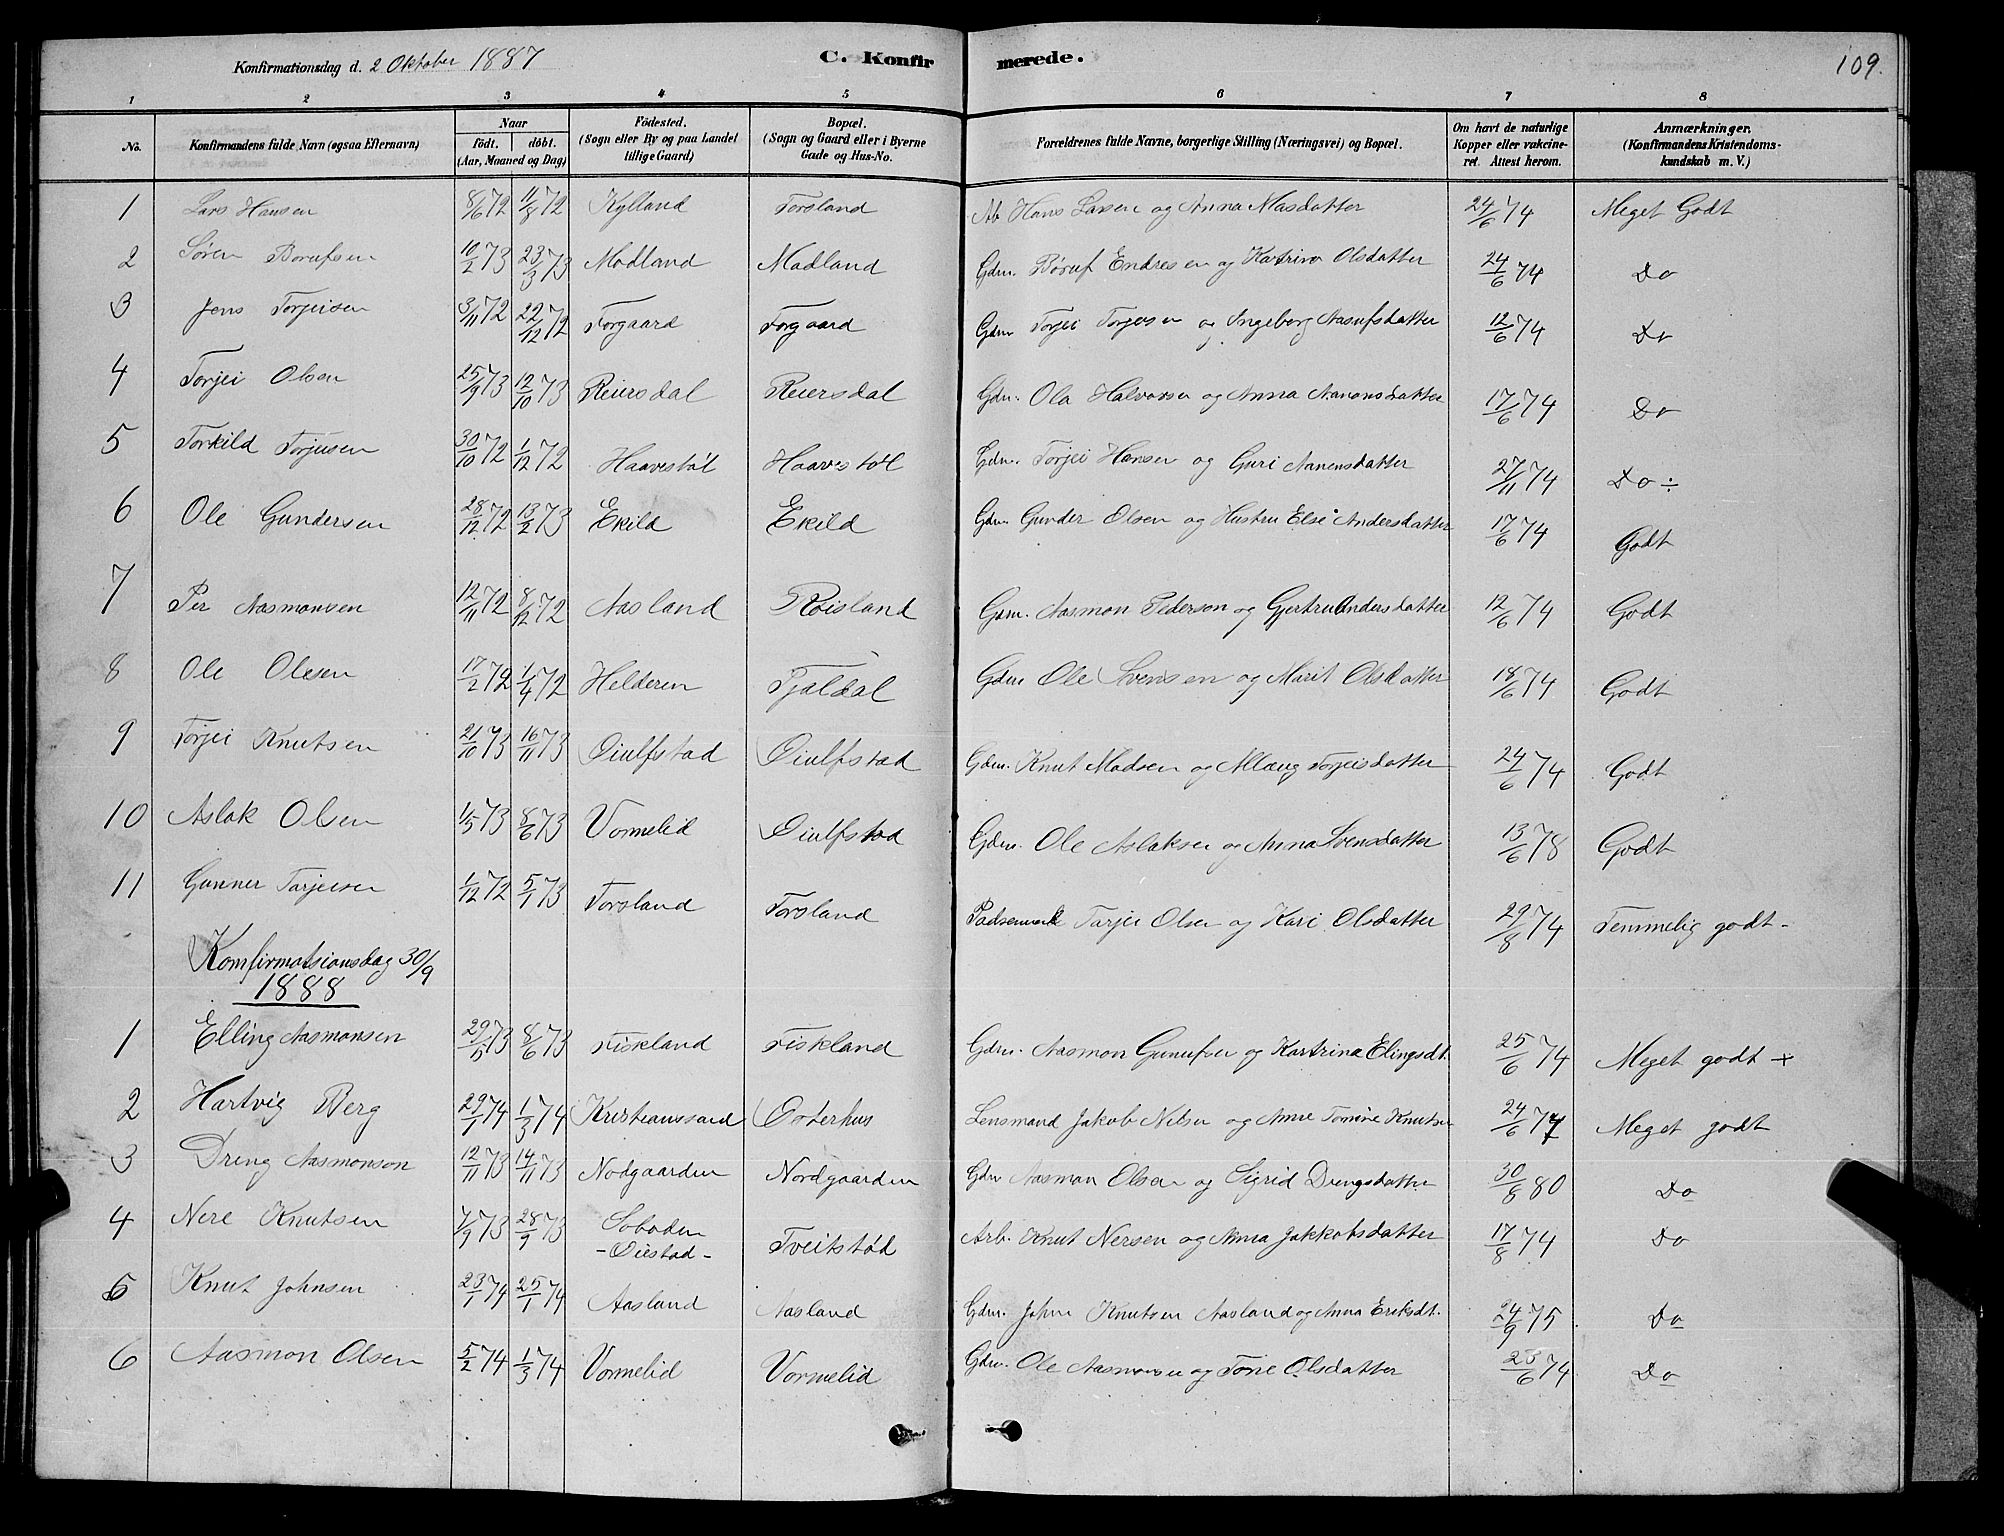 Konfirmationsdag d. 2 Oktober 1887 C. Konfirmerede. 109.
1 2 3 4 5 6 7 8
No. Konfirmandens fulde Navn (ogsaa Efternavn) Naar født. døbt. (Aar, Maaned og Dag) Fødested. (Sogn eller By og paa Landet tillige Gaard) Bopæl. (Sogn og Gaard eller i Byerne Gade og Hus-No. Forældrenes fulde Navne, borgerlige Stilling (Næringsvei) og Bopæl. Om havt de naturlige Kopper eller vakcineret. Attest herom. Anmærkninger. (Konfirmandens Kristendomskundskab m. V.)
1 Lars Hansen 8/6 72 11/8 72 Kylland Forsland Ab Hans Larsen og Anna Masdatter 24/6 74 Meget Godt
2 Søren Børufsen 10/2 73 23/3 73 Modland Madland Gdm. Børuf Endresen og Katrine Olsdatter 24/6 74 Do
3 Jens Torjeisen 3/11 72 22/12 72 Forgaard Forgaard Gdm Torjei Torjesen og Ingeborg Aasufsdatter 12/6 74 Do
4 Torjei Olsen 25/9 73 12/10 73 Reiersdal Reiersdal Gdm. Ola Halvorsen og Anna Aanonsdatter 17/6 74 Do
5 Torkild Torjusen 30/10 72 1/12 72 Haavestøl Haavestøl Gdm. Torjei Hansen og Guri Aanensdatter 27/11 74 Do ÷
6 Ole Gundersen 28/12 72 13/2 73 Ekild Ekild Gdm. Gunder Olsen og Hustru Else Andersdatter 17/6 74 Godt
7 Per Aasmonsen 12/11 72 8/12 72 Aasland Røisland Gdm. Aasmon Pederson og Gjertru Andersdatter 12/6 74 Godt
8 Ole Olesen 17/2 72 1/4 72 Helderen Tjaldal Gdm Ole Svensen og Marit Olsdatter 18/6 74 Godt
9 Torjei Knutsen 21/10 73 16/11 73 Øiulfstad Øiulfstad Gdm. Knut Madsen og Allaug Torjeisdatter 24/6 74 Godt
10 Aslak Olsen 1/5 73 8/6 73 Vormelid Øiulfstad Gdm. Ole Aslaksen og Anna Svensdatter 13/6 78 Godt
11 Gunner Tarjeisen 1/12 72 5/1 73 Forsland Forsland Tarjei Olsen og Kari Olsdatter 29/8 74 Temmelig godt -
Komfirmatsionsdag 30/9
1888
1 Elling Aasmonsen 29/5 73 8/6 73 Fiskland Fiskland Gdm. Aasmon Gunufsen og Kartrina Elingsdt. 25/6 74 Meget godt +
2 Hartvig Berg 29/1 74 1/3 74 Kristianssand Osterhus Lensmand Jakob Nilsen og Anne Tomine Knutsen 24/6 77 Meget godt
3 Dreng Aasmonson 12/11 73 14/11 73 Nodgaarden Nordgaarden Gdm Aasmon Olsen og Sigrid Drengsdatter 30/8 80 Do
4 Nere Knutsen 7/9 73 28/9 73 Soboden
-Øiestad- Tveitstød Arb. Knut Nersen og Anna Jakkobsdatter 17/8 74 Do
5 Knut Johnsen 23/1 74 25/1 74 Aasland Aasland Gdm. John Knutsen Aasland og Anna Eriksdt. 24/9 75 Do
6 Aasmon Olsen 5/2 74 1/3 74 Vormelid Vormelid Gdm. Ole Aasmonsen og Tone Olsdatter 23/6 74 Do